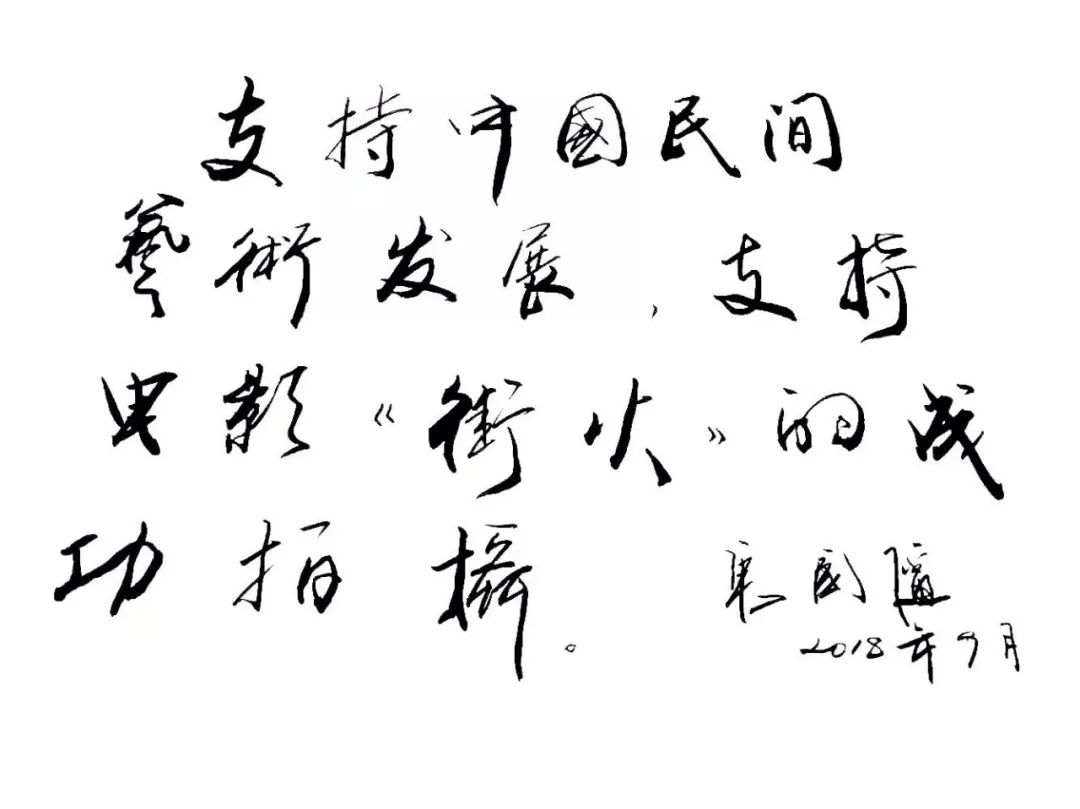 支持中國民间
藝術发展，支持
电影《街火》的成
功拍攝。
国
2018年9月